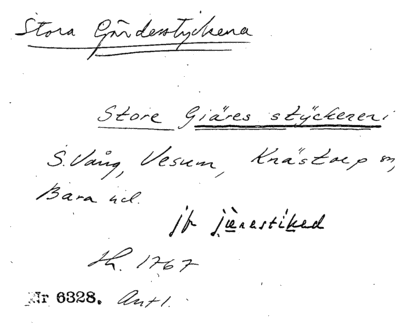 Stora Gärdesstyckena
Store Giäres stÿckenen
S. Vång, Vesum, Knästorp sn,
Bara hd.
jfr järestiked
Lh. 1767
Nr 6328. Ant 1.